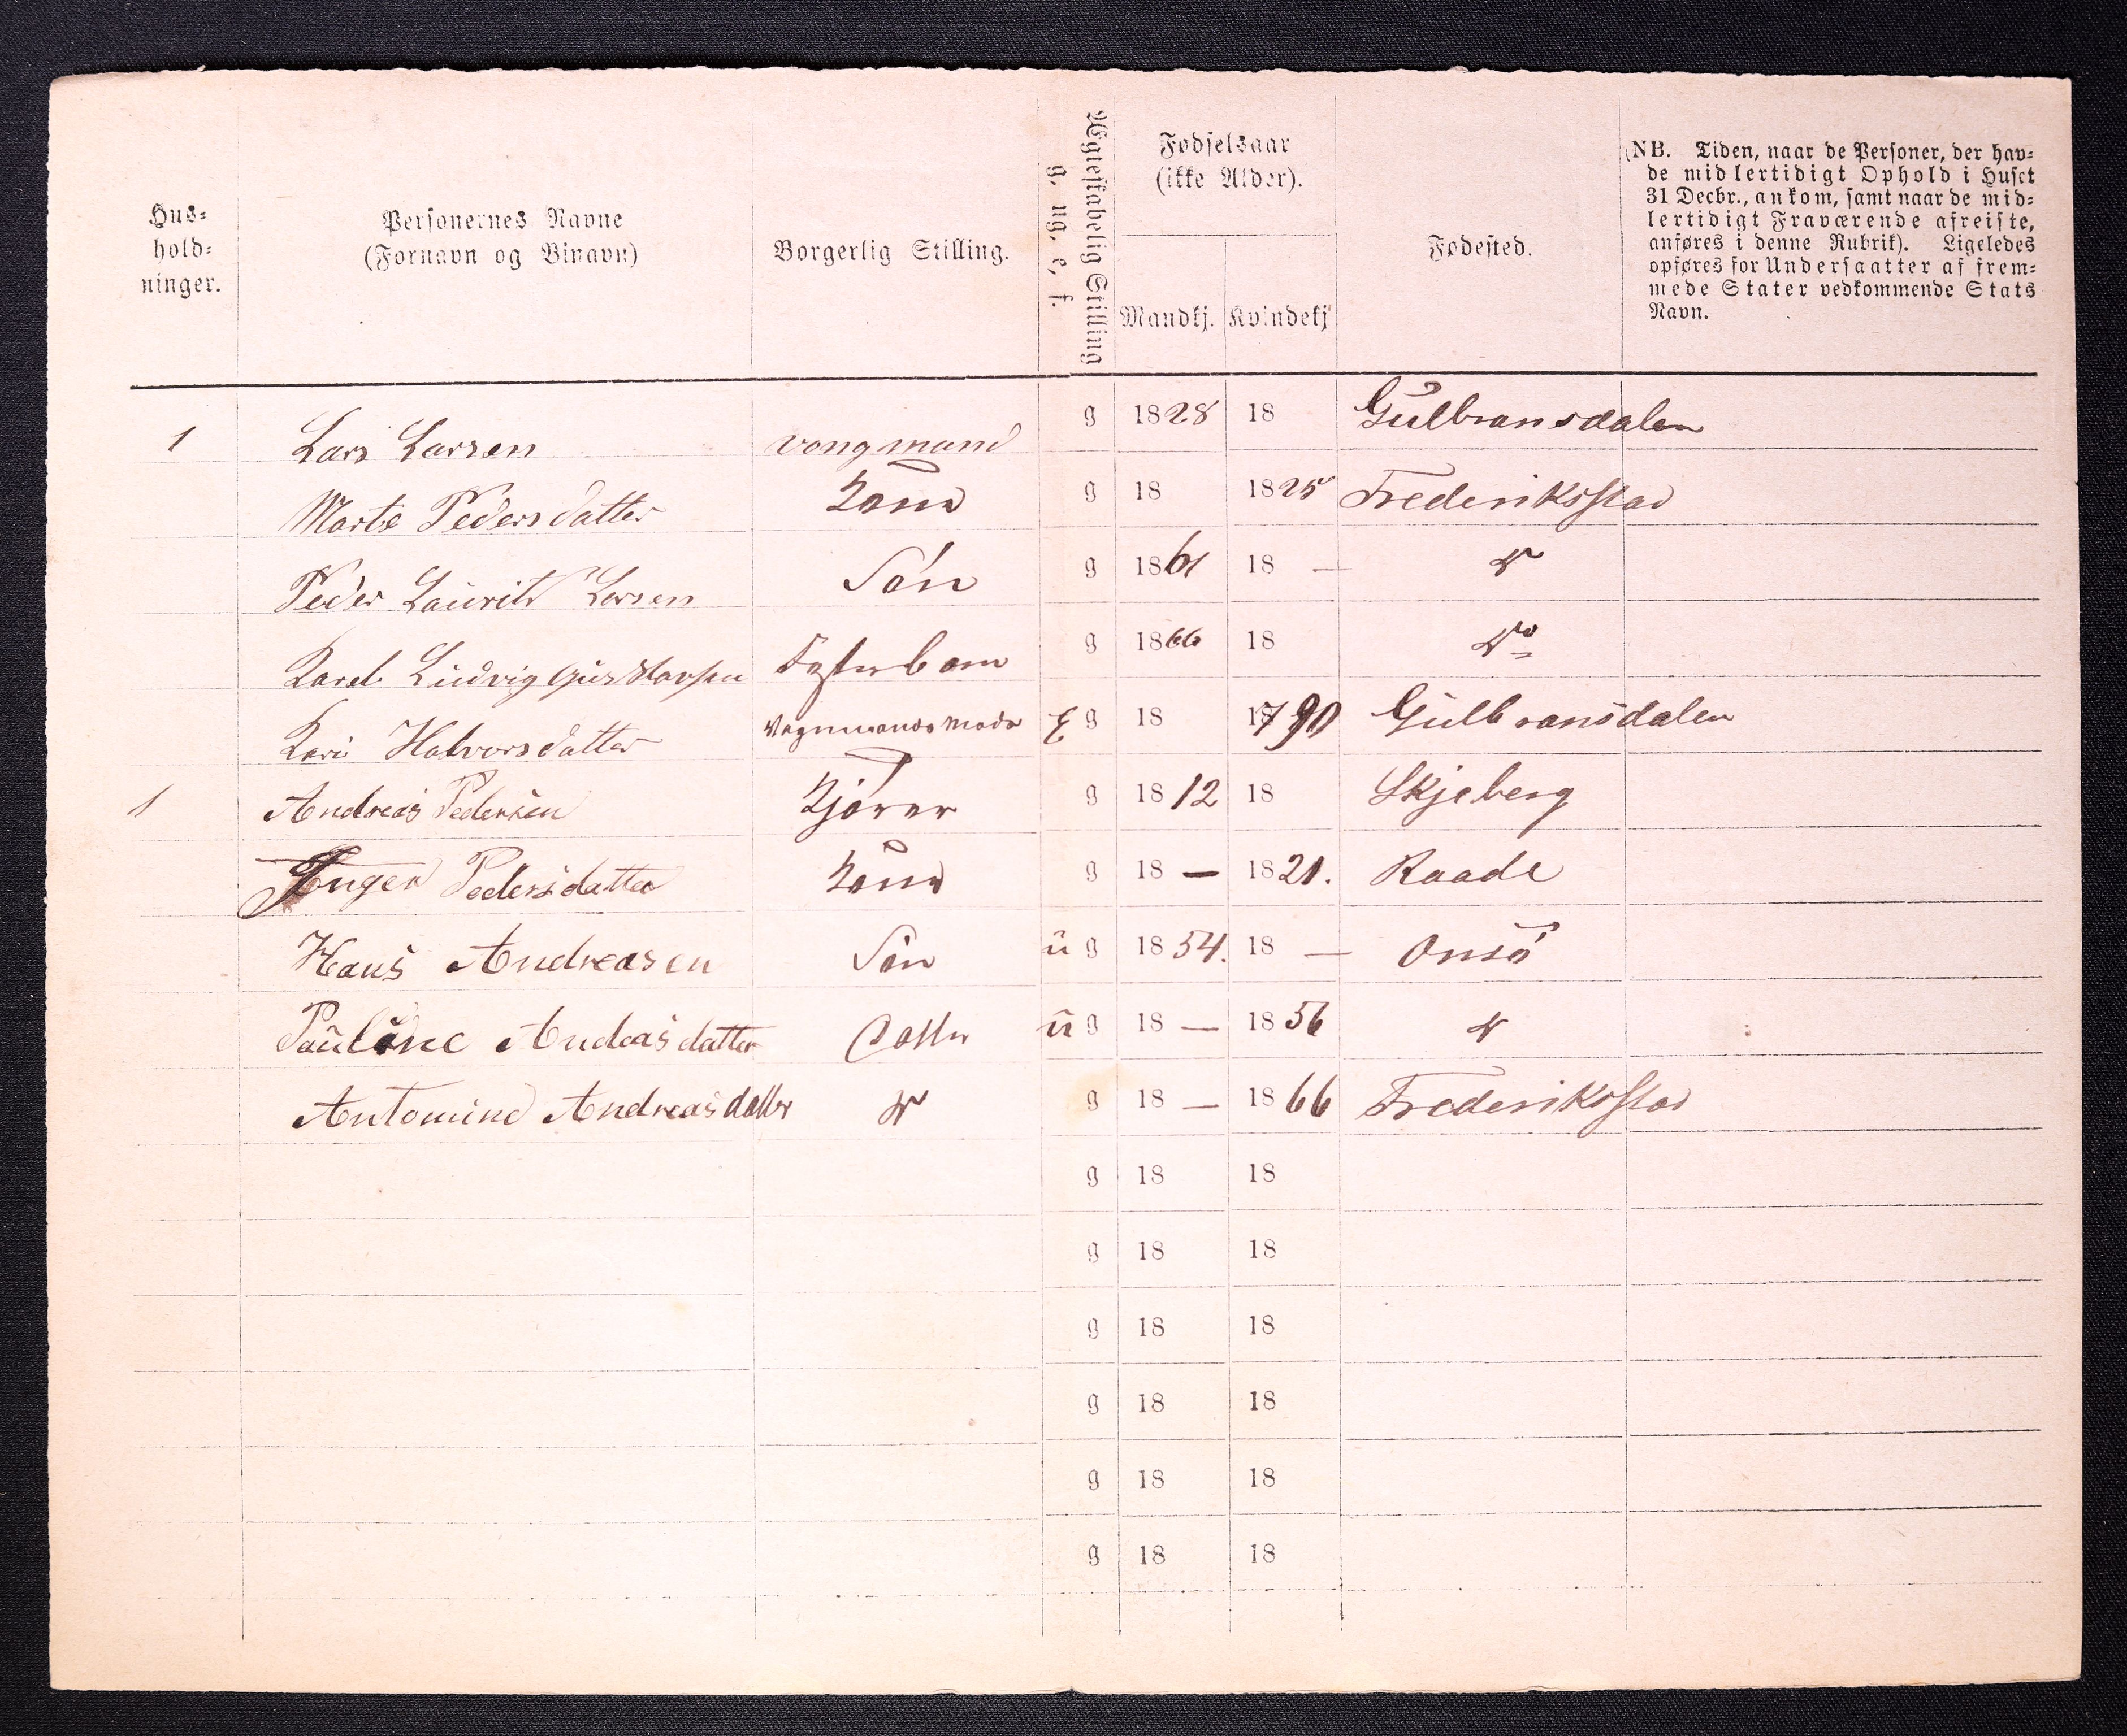 Hus=
hold=
ninger.
Personernes Navne
(Fornavn og Binavn)
Borgerlig Stilling.
Ægteskabelig Stilling
g. ug. e. f.
Fødselsaar
(ikke Alder).
Mandkj. Kvindekj
Fødested.
(NB. Tiden, naar de Personer, der hav=
de midlertidigt Ophold i Huset
31 Decbr., ankom, samt naar de mid=
lertidigt Fraværende afreiste,
anføres i denne Rubrik). Ligeledes
opføres for Undersaatter af frem=
mede Stater vedkommende Stats
Navn.
1 Lars Larsen vongmand g 1828 18 Gulbransdalen
Marte Pedersdatter Kone g 18 1825 Frederiksstad
Peder Laurits Larsen Søn g 1861 18 — do
Karel Ludvig Gustavsen Fosterbarn g 1866 18 do
Kari Halvorsdatter Vognmands Moder E g 18 1790 Gulbransdalen
1 Andreas Pedersen Kjører g 1812 18 Skjeberg
Inger Pedersdatter Kone g 18 — 1821. Raade
Hans Andreasen Søn u g 1854. 18 — Onsø
Pauline Andreasdatter Datter u g 18 — 1856 do
Antomine Andreasdatter do g 18 — 1866 Frederiksstad
g 18 18
g 18 18
g 18 18
g 18 18
g 18 18
g 18 18